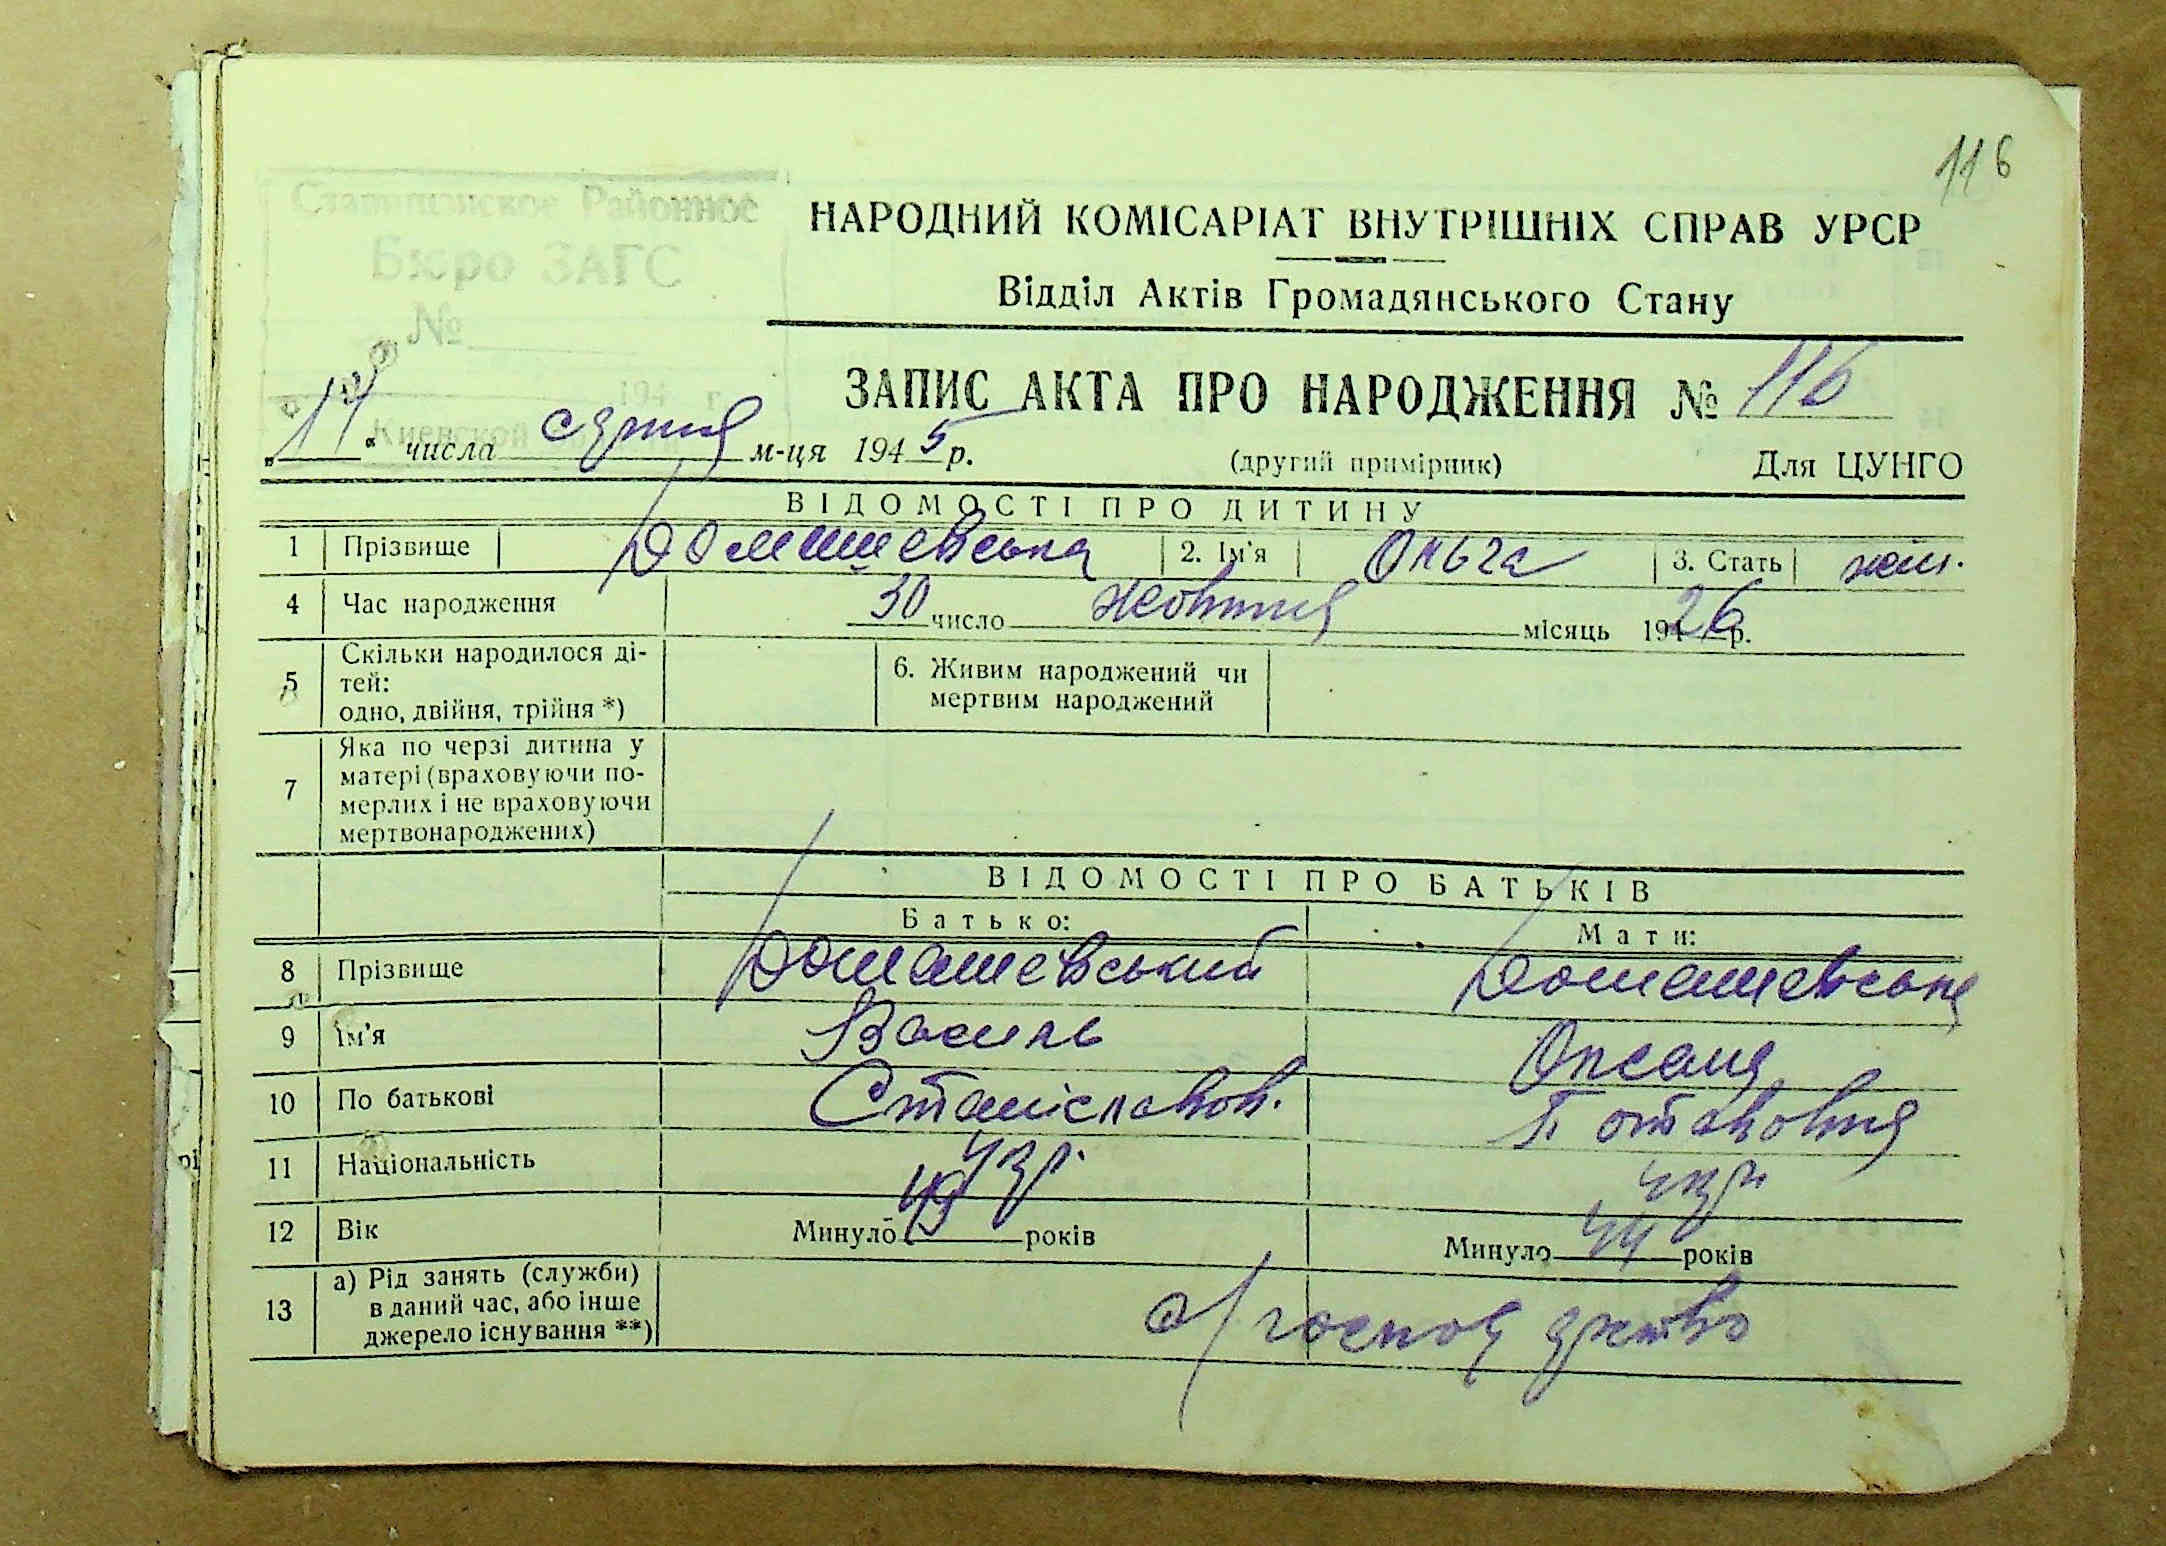 116
Ставищанское Районное
Бюро ЗАГС
№
194 г.
Киевской
НАРОДНИЙ КОМІСАРІАТ ВНУТРІШНІХ СПРАВ УРСР
Відділ Актів Громадянського Стану
ЗАПИС АКТА ПРО НАРОДЖЕННЯ № 116
„14“ числа серпня м-ця 1945 р. (другий примірник) Для ЦУНГО
ВІДОМОСТІ ПРО ДИТИНУ
1 Прізвище Домашевська 2. Ім'я Ольга 3. Стать жін.
4 Час народження 30 число жовтня місяць 1926 р.
5 Скільки народилося ді-
тей:
одно, двійня, трійня *)
6. Живим народжений чи
мертвим народжений
7 Яка по черзі дитина у
матері (враховуючи по-
мерлих і не враховуючи
мертвонароджених)
ВІДОМОСТІ ПРО БАТЬКІВ
Батько: Мати:
8 Прізвище Домашевський Домашевська
9 Ім'я Василь Оксана
10 По батькові Станіславов. Потаповна
11 Національність укр. укр.
12 Вік Минуло 49 років Минуло 44 років
13 а) Рід занять (служби)
в даний час, або інше
джерело існування **)
с/господарство